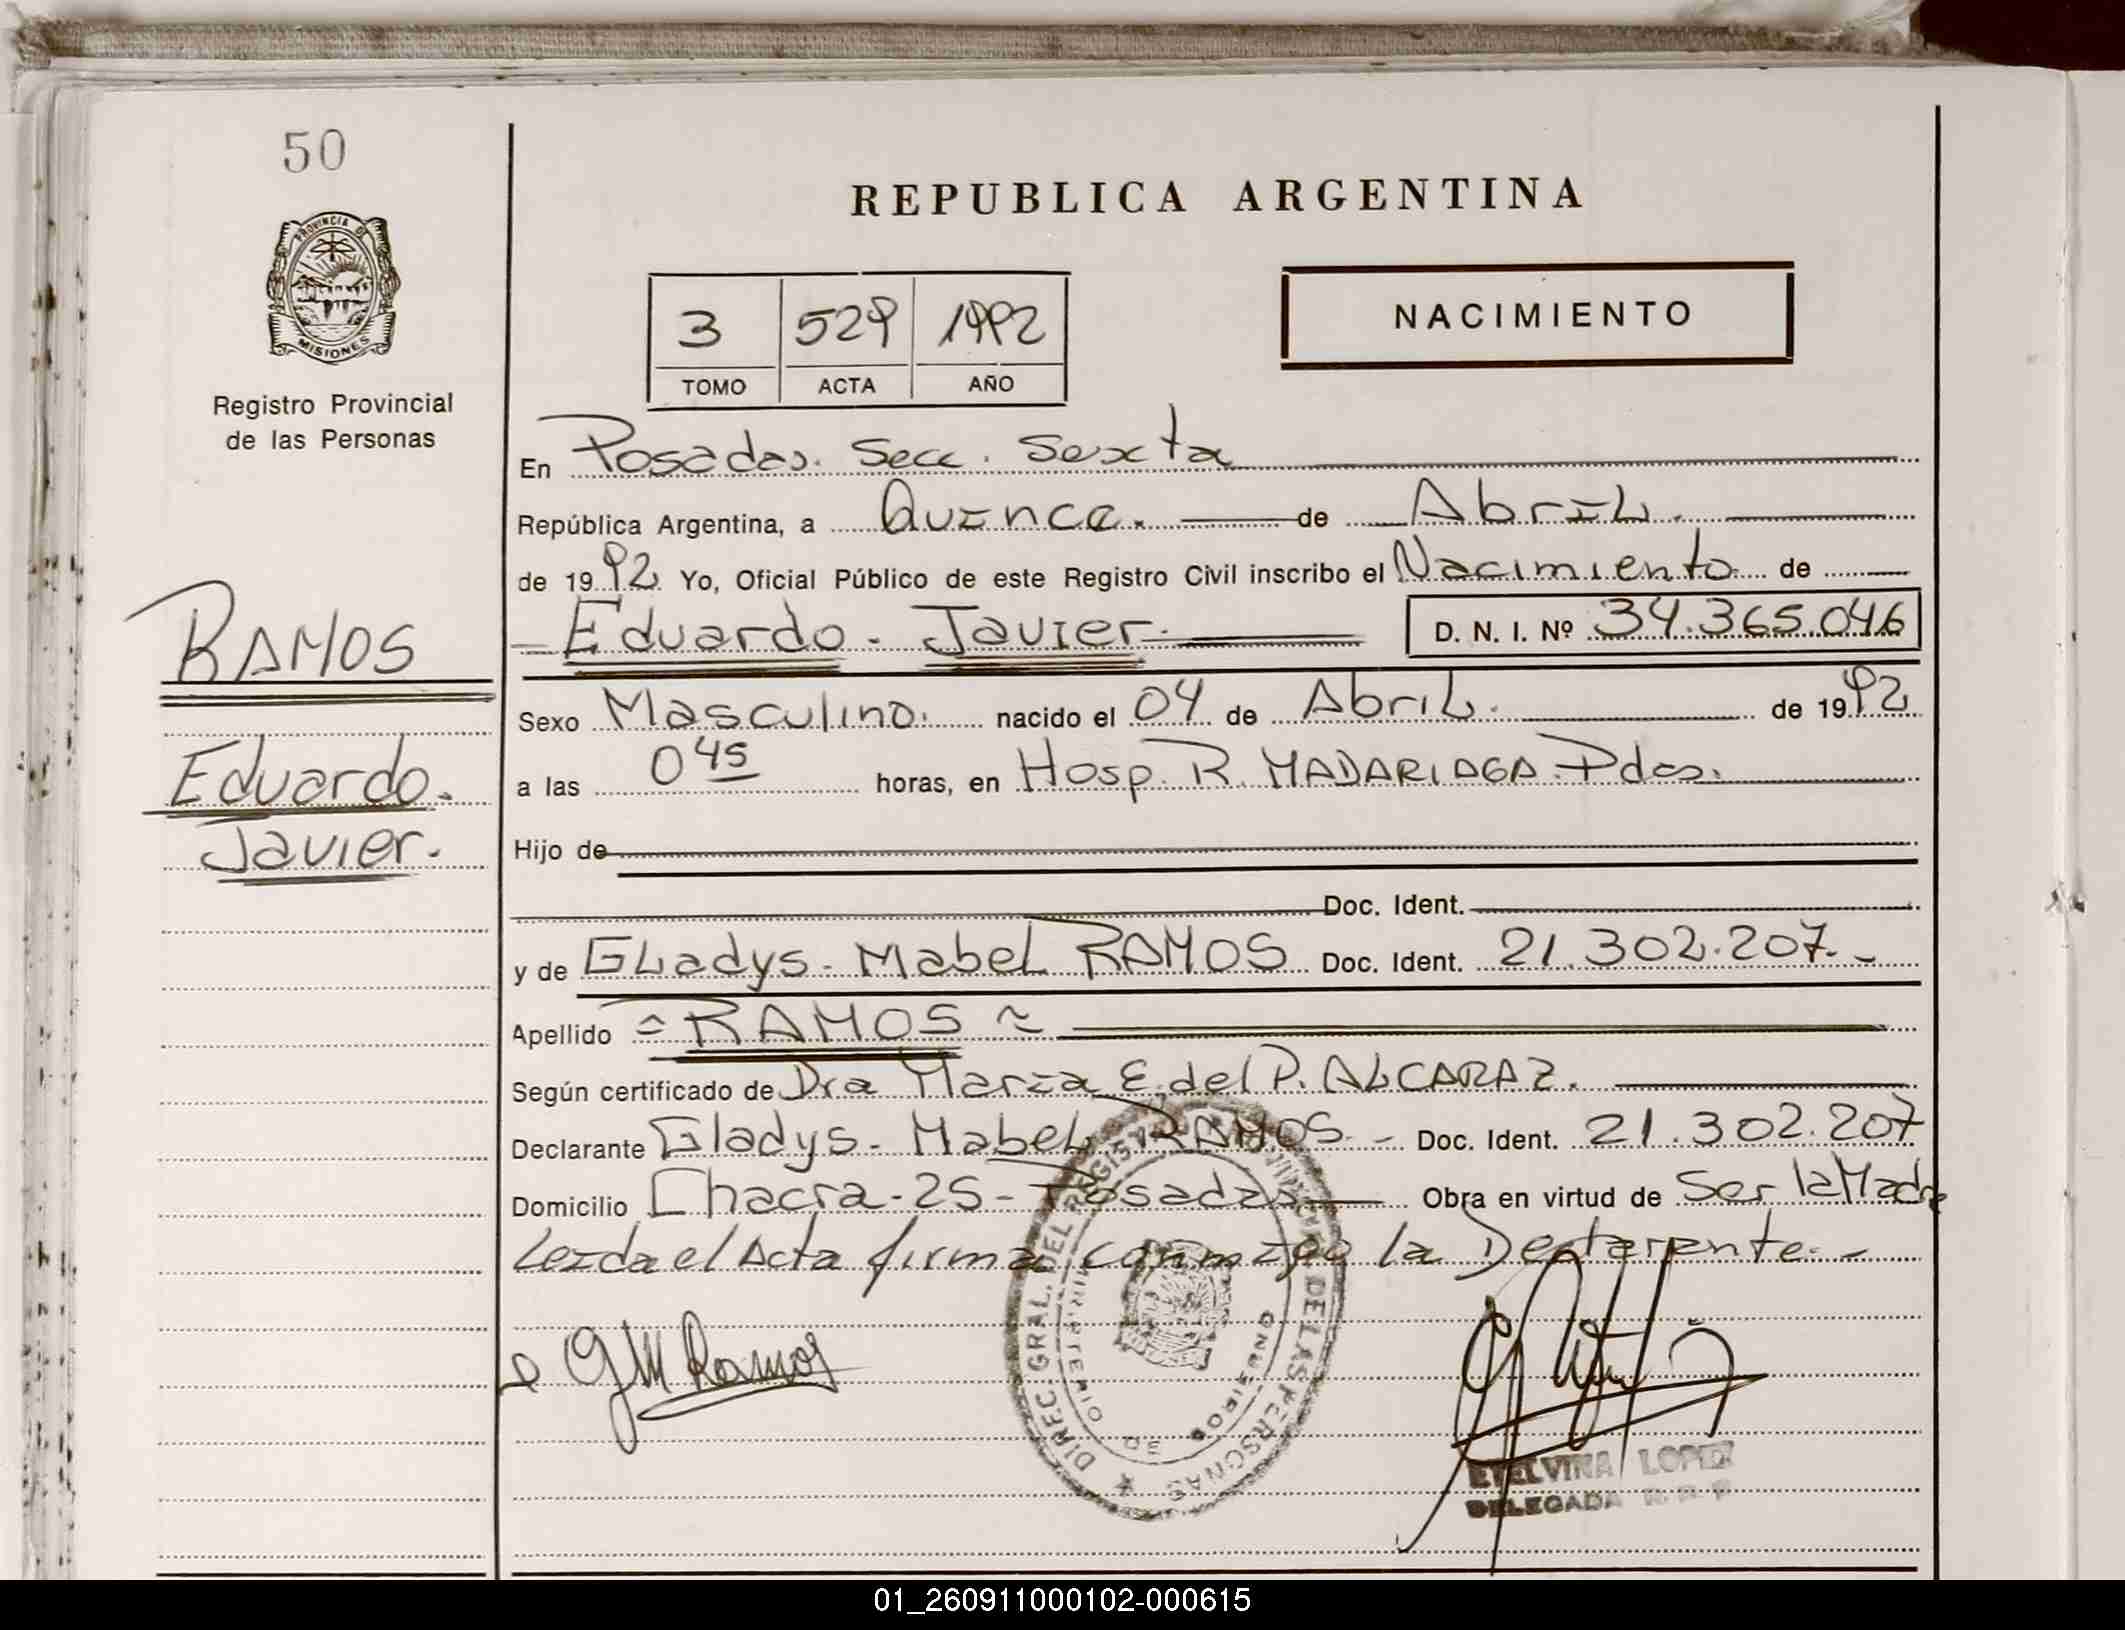 50
REPUBLICA ARGENTINA
PROVINCIA DE
MISIONES
Registro Provincial
de las Personas
3 529 1992
TOMO ACTA AÑO
NACIMIENTO
En Posadas. Secc. Sexta
República Argentina, a Quince. de Abril.
de 1992 Yo, Oficial Público de este Registro Civil inscribo el Nacimiento de
Eduardo. Javier. D. N. I. Nº 34.365.046
RAMOS
Eduardo.
Javier.
Sexo Masculino. nacido el 04 de Abril. de 1992
a las 0 45 horas, en Hosp. R. MADARIAGA. Pdas.
Hijo de
Doc. Ident.
y de Gladys. Mabel RAMOS Doc. Ident. 21.302.207.-
Apellido = RAMOS =
Según certificado de Dra Maria E. del P. ALCARAZ.
Declarante Gladys. Mabel RAMOS. - Doc. Ident. 21.302.207
Domicilio Chacra-25-Posadas Obra en virtud de Ser la Madre
Leida el Acta firma conmigo la Declarante.-
GM Ramos
DIREC. GRAL. DEL REGISTRO DE LAS PERSONAS
DE
ETELVINA LOPEZ
DELEGADA R. R. P
01_260911000102-000615